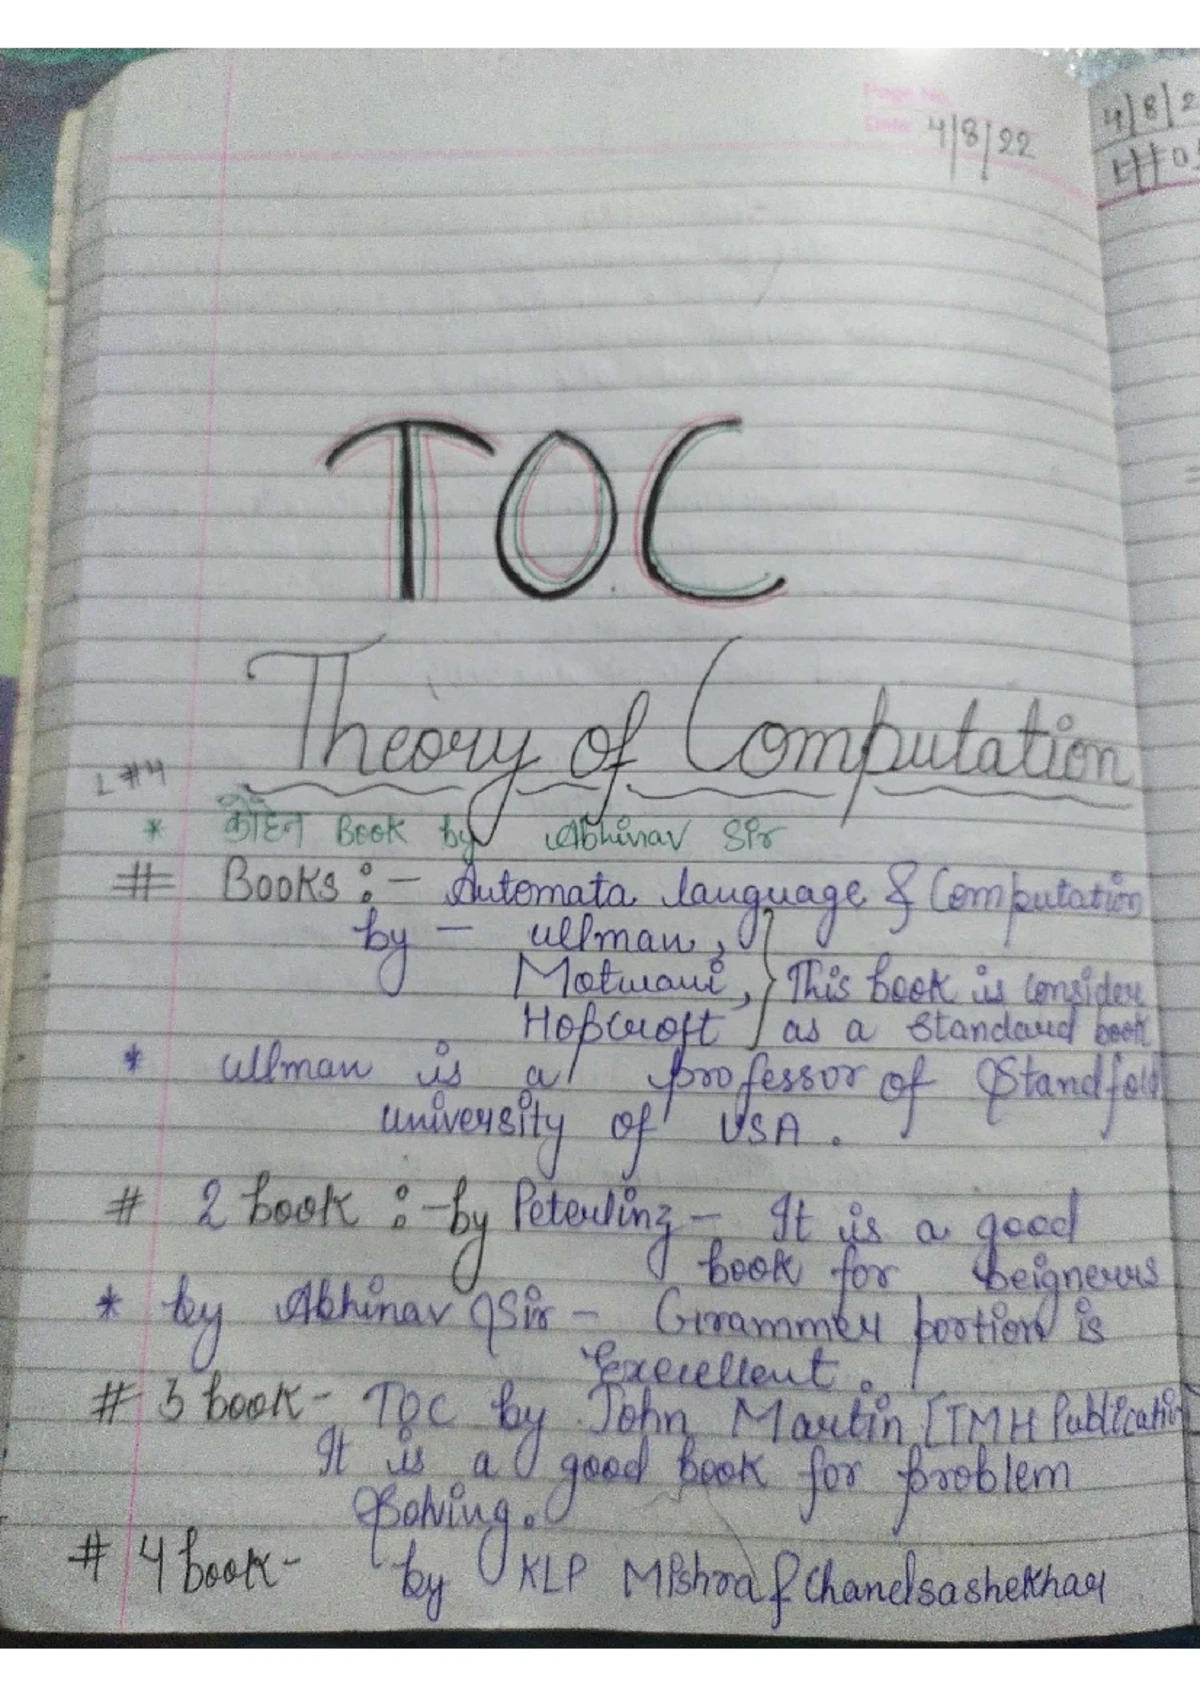 Page No.
Date 4/8/22
4/8/2
TOC
Theory of Computation
L#4
* कोहेन Book by Abhinav Sir
# Books :- Automata language & Computation
by - ullman,
Motwani, } This book is consider
Hopcroft as a standard book
* ullman is a professor of Standfold
university of USA.
# 2 book :- by Peterling - It is a good
book for beignerrs
* by Abhinav Sir - Grammer portion is
Execellent.
# 3 book - TOC by John Martin [TMH Publicatio
It is a good book for problem
Solving.
# 4 book - by KLP Mishra & Chandsashekhar